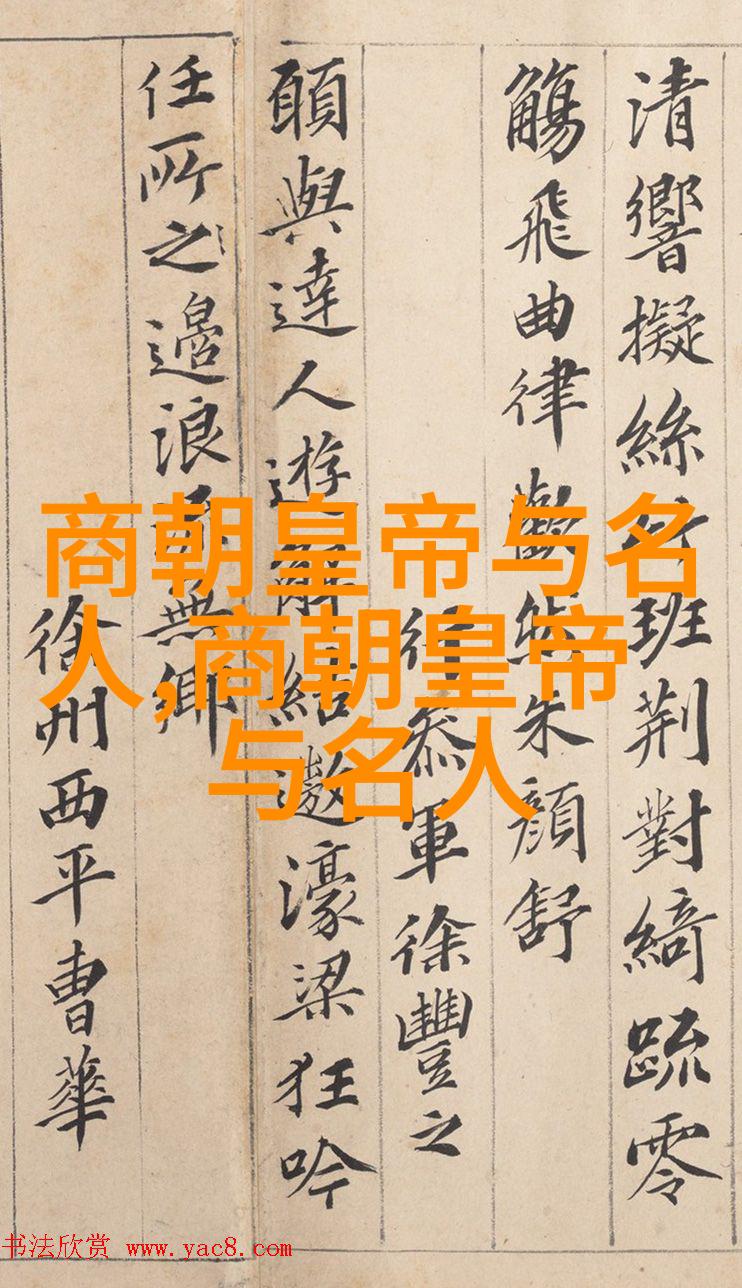 商朝皇帝与名
人,商朝皇帝
与名人
清響擬絲竹班荊對綺疏零
觴飛曲律歡然朱顏舒
行參軍徐豐之
願與達人遊解結遨濠梁狂吟
任所之邊浪無鄉
徐州西平曹華
书法欣赏 www.yac8.com